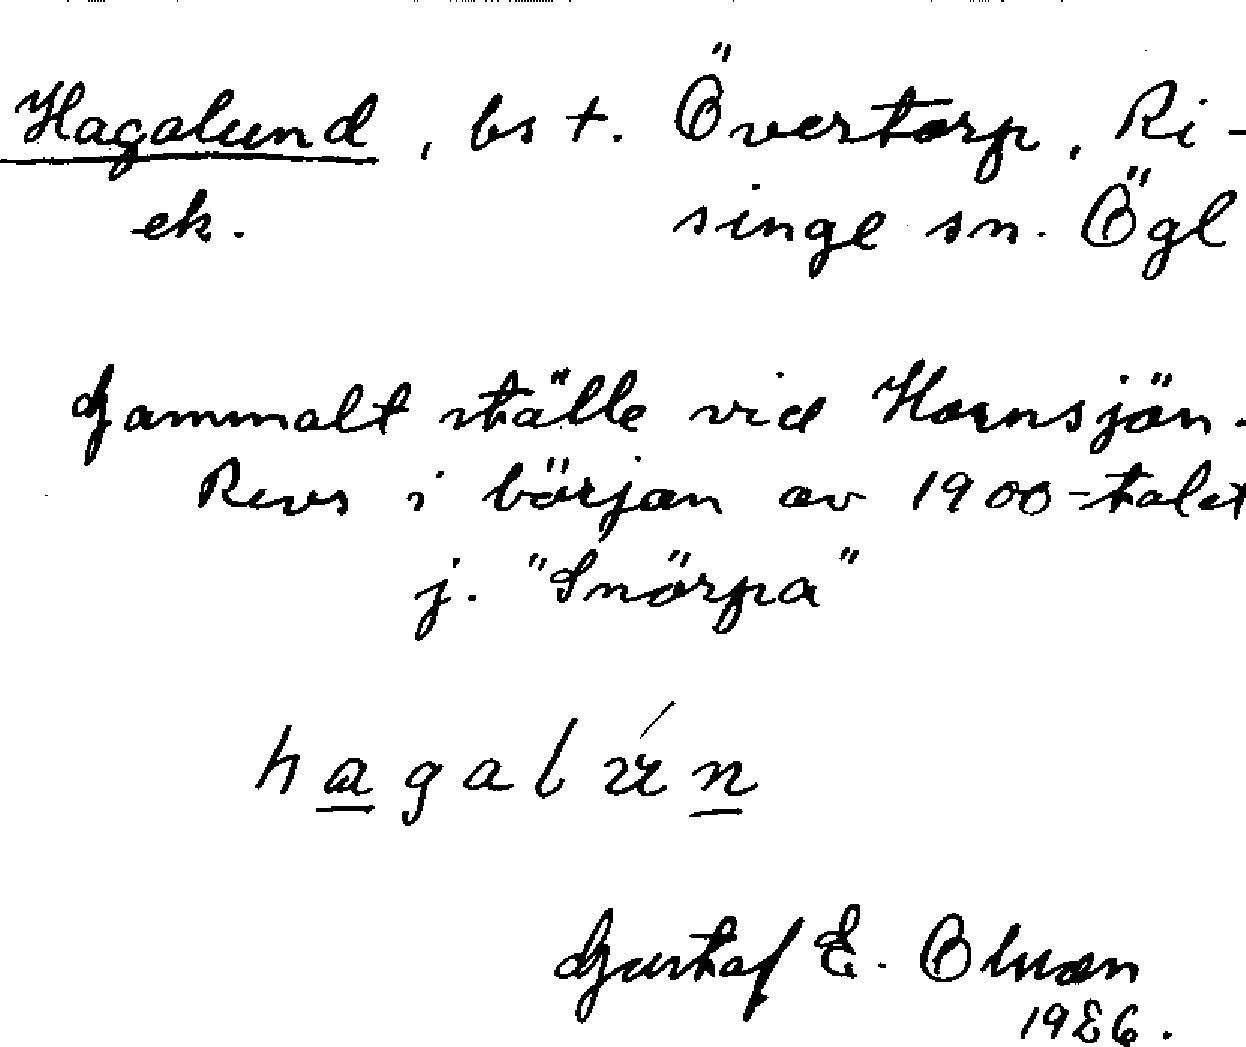 Hagalund, bs t. Övertorp, Ri-
ek. singe sn. Ögl
Gammalt ställe vid Hornsjön.
Revs i början av 1900-talet
j. "Snörpa"
hagalún
Gustaf E. Olsson
1986.